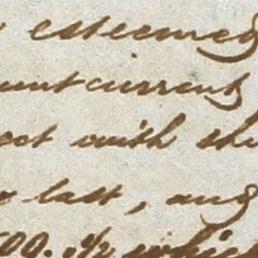 esteemed
unt current
ect with the
last, and
500.